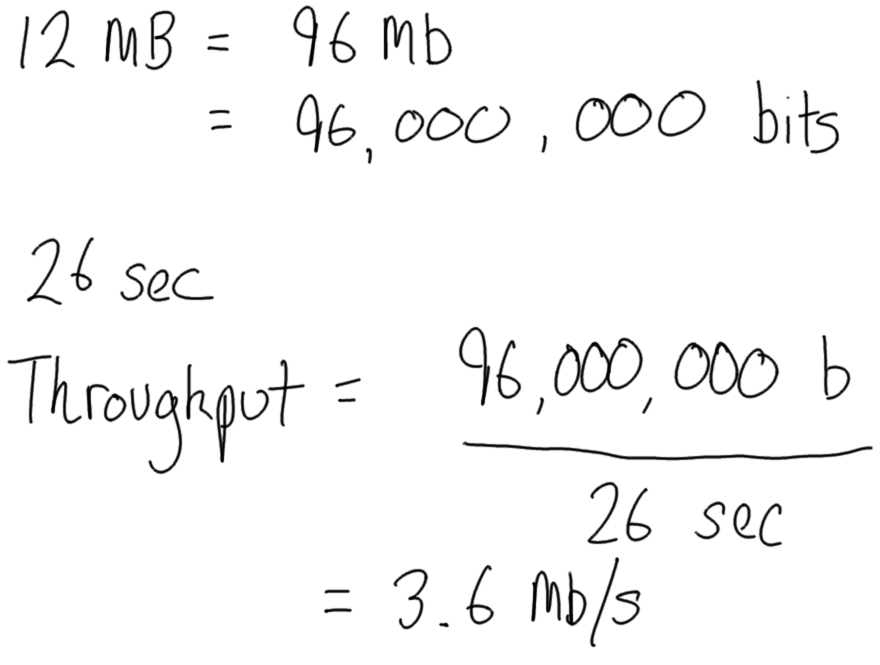 12 MB = 96 Mb
= 96,000,000 bits
26 sec
Throughput = 96,000,000 b
26 sec
= 3.6 Mb/s